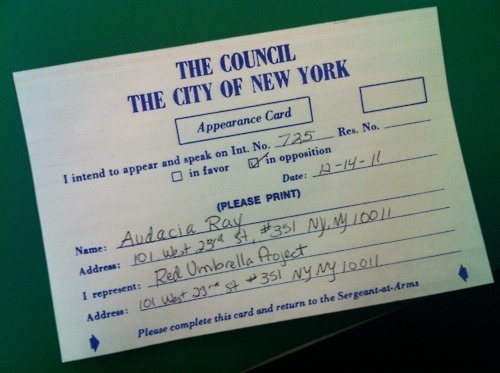 THE COUNCIL
THE CITY OF NEW YORK
Appearance Card
I intend to appear and speak on Int. No. 725 Res. No.
in favor in opposition
Date: 12-14-11
(PLEASE PRINT)
Name: Audacia Ray
Address: 101 West 23rd St, #351 NY, NY 10011
I represent: Red Umbrella Project
Address: 101 West 23rd St #351 NY NY 10011
Please complete this card and return to the Sergeant-at-Arms